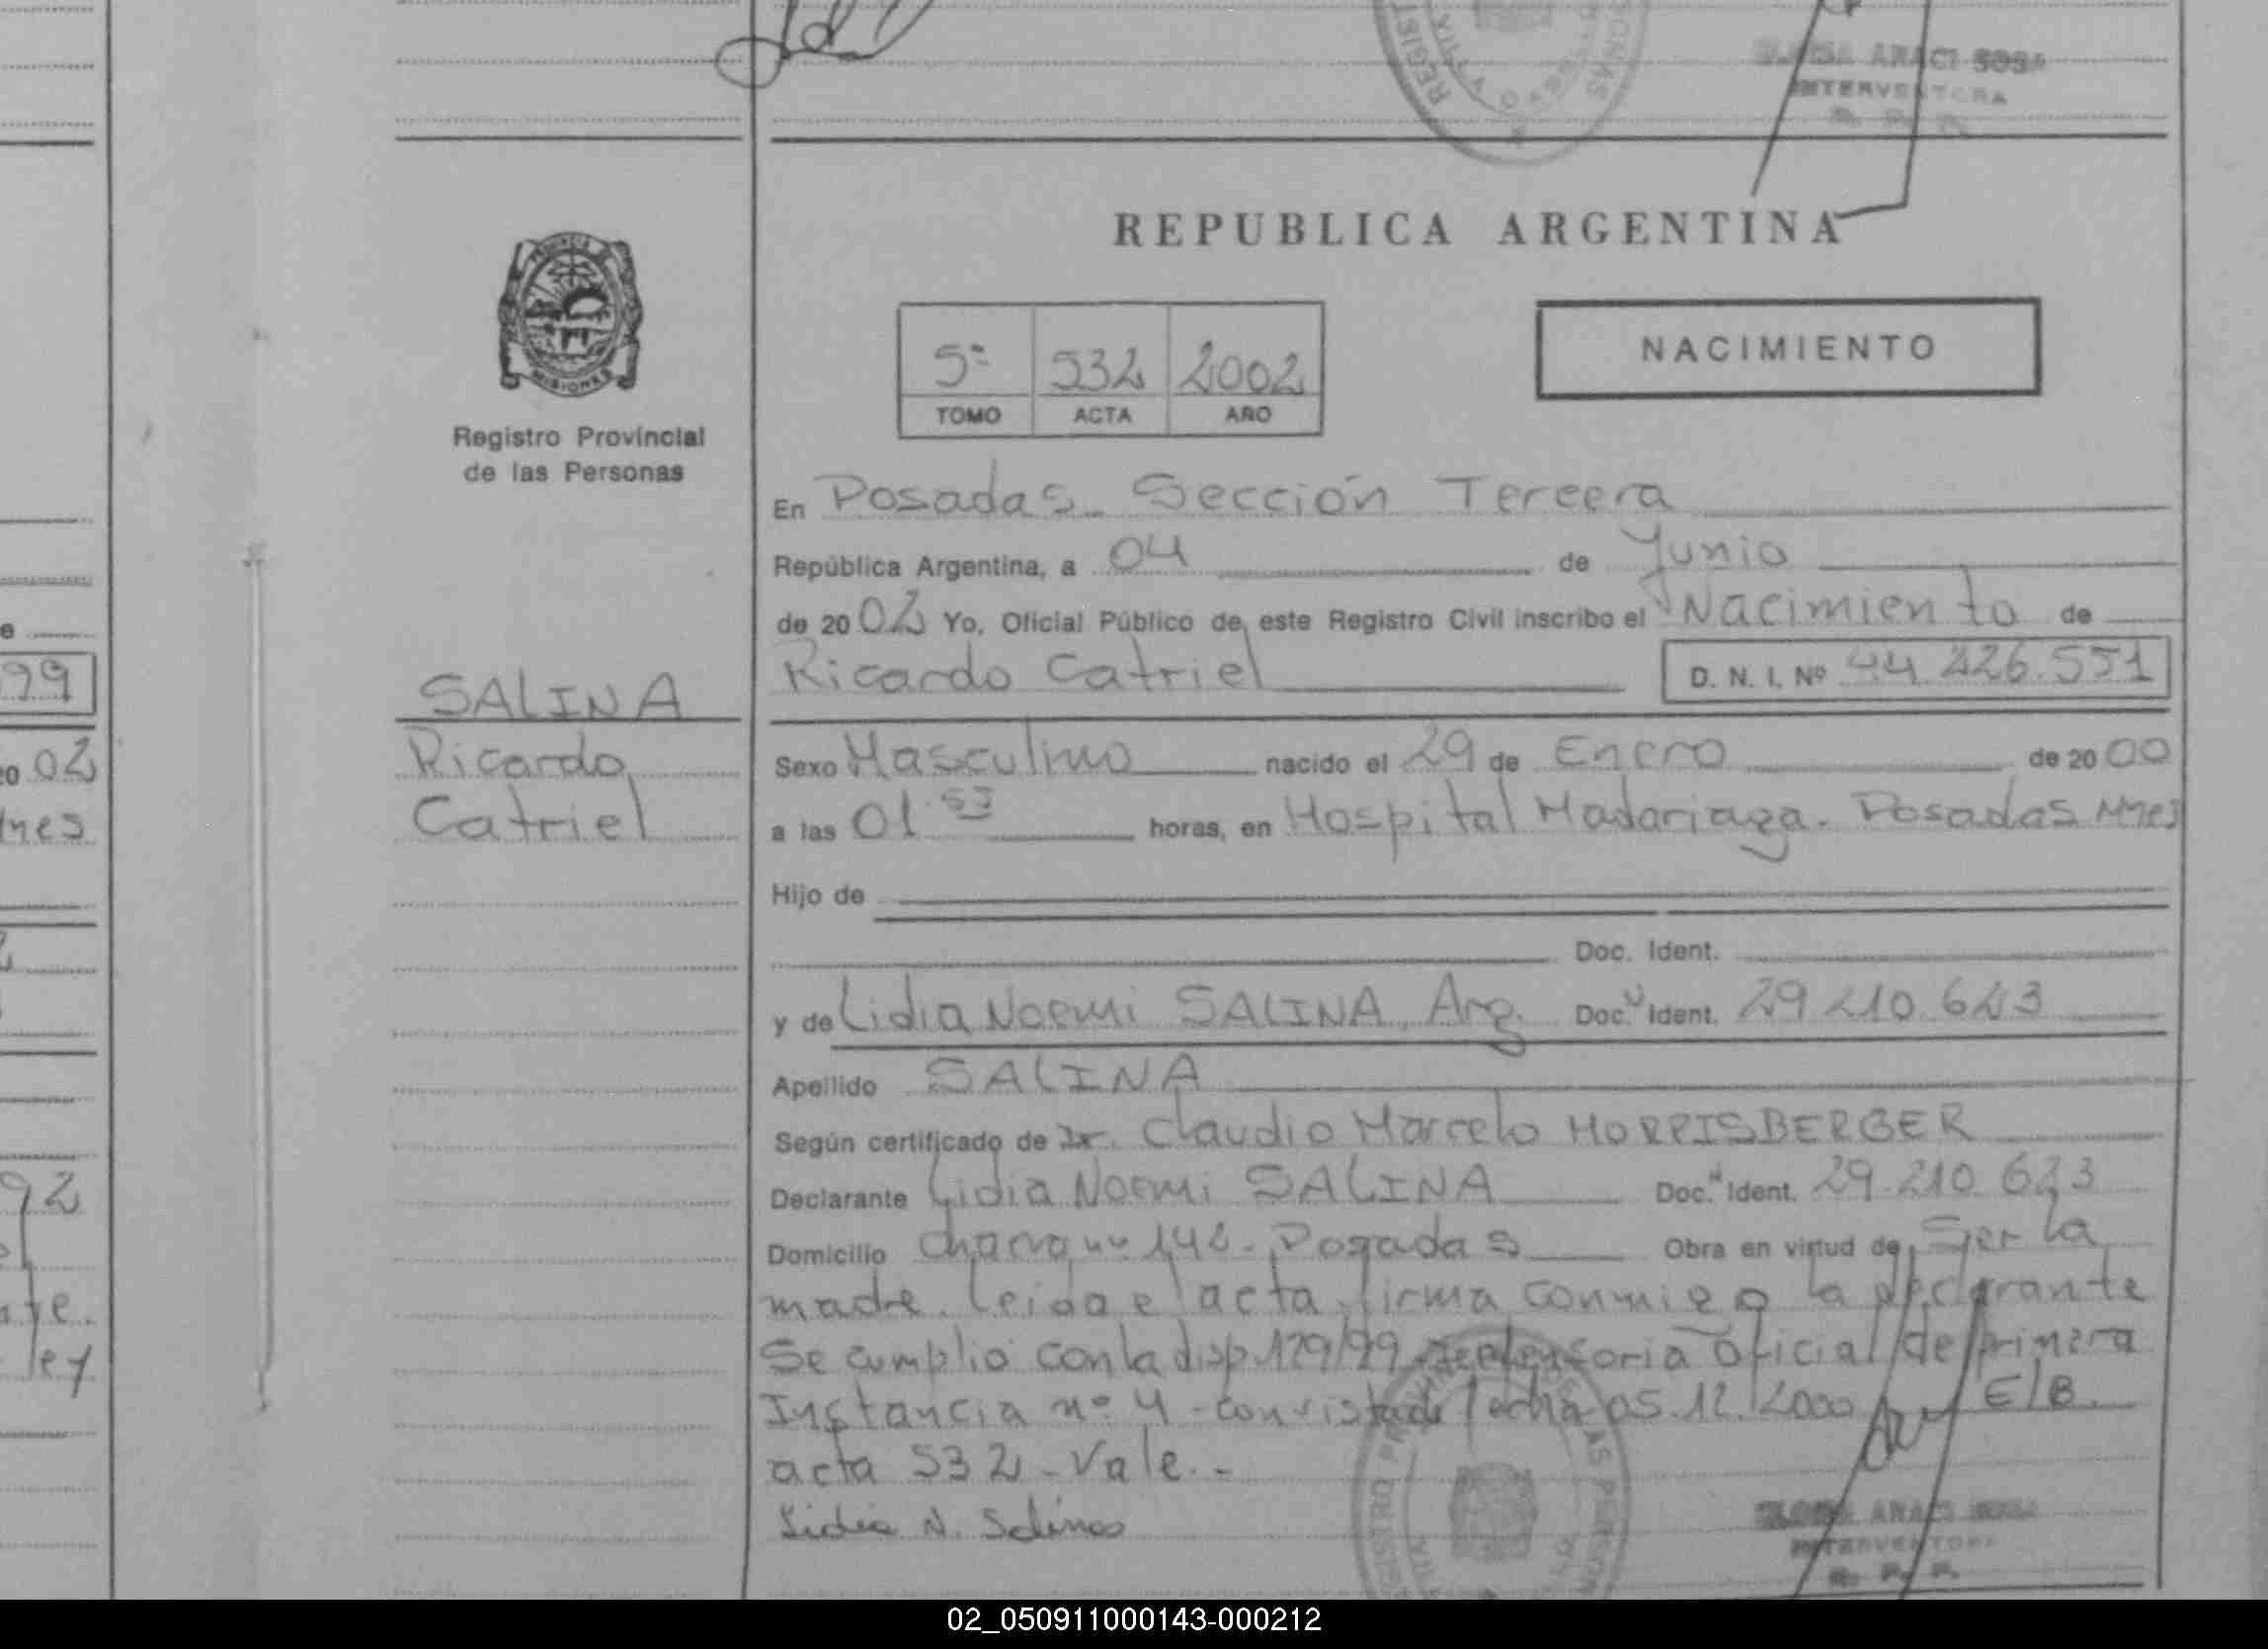 GLORIA ARACI SOSA
INTERVENTORA
R. P. P.
REPUBLICA ARGENTINA
PROVINCIA DE
MISIONES
Registro Provincial
de las Personas
5º 532 2002
TOMO ACTA AÑO
NACIMIENTO
En Posadas - Sección Tercera
República Argentina, a 04 de Junio
de 2002 Yo, Oficial Público de este Registro Civil inscribo el Nacimiento de
Ricardo Catriel D. N. I. Nº 44.226.551
SALINA
Ricardo
Catriel
Sexo Masculino nacido el 29 de Enero de 2000
a las 01.53 horas, en Hospital Madariaga. Posadas Mnes
Hijo de
Doc. Ident.
y de Lidia Noemi SALINA, Arg. Doc. Ident. 29.210.623
Apellido SALINA
Según certificado de Dr. Claudio Marcelo MORRISBERGER
Declarante Lidia Noemi SALINA Doc. Ident. 29.210.623
Domicilio Chacra nº 142 - Posadas Obra en virtud de Ser la
madre. Leida el acta firma conmigo la declarante
Se cumplio con la disp. 129/99 Defensoria Oficial de primera
Instancia nº 4 - con vista de fecha 05.12.2000 E/B.
acta 532 - Vale.-
Lidia N. Salinas
GLORIA ARACI SOSA
INTERVENTORA
R. P. P.
99
20 02
Mnes
92
ley
02_050911000143-000212